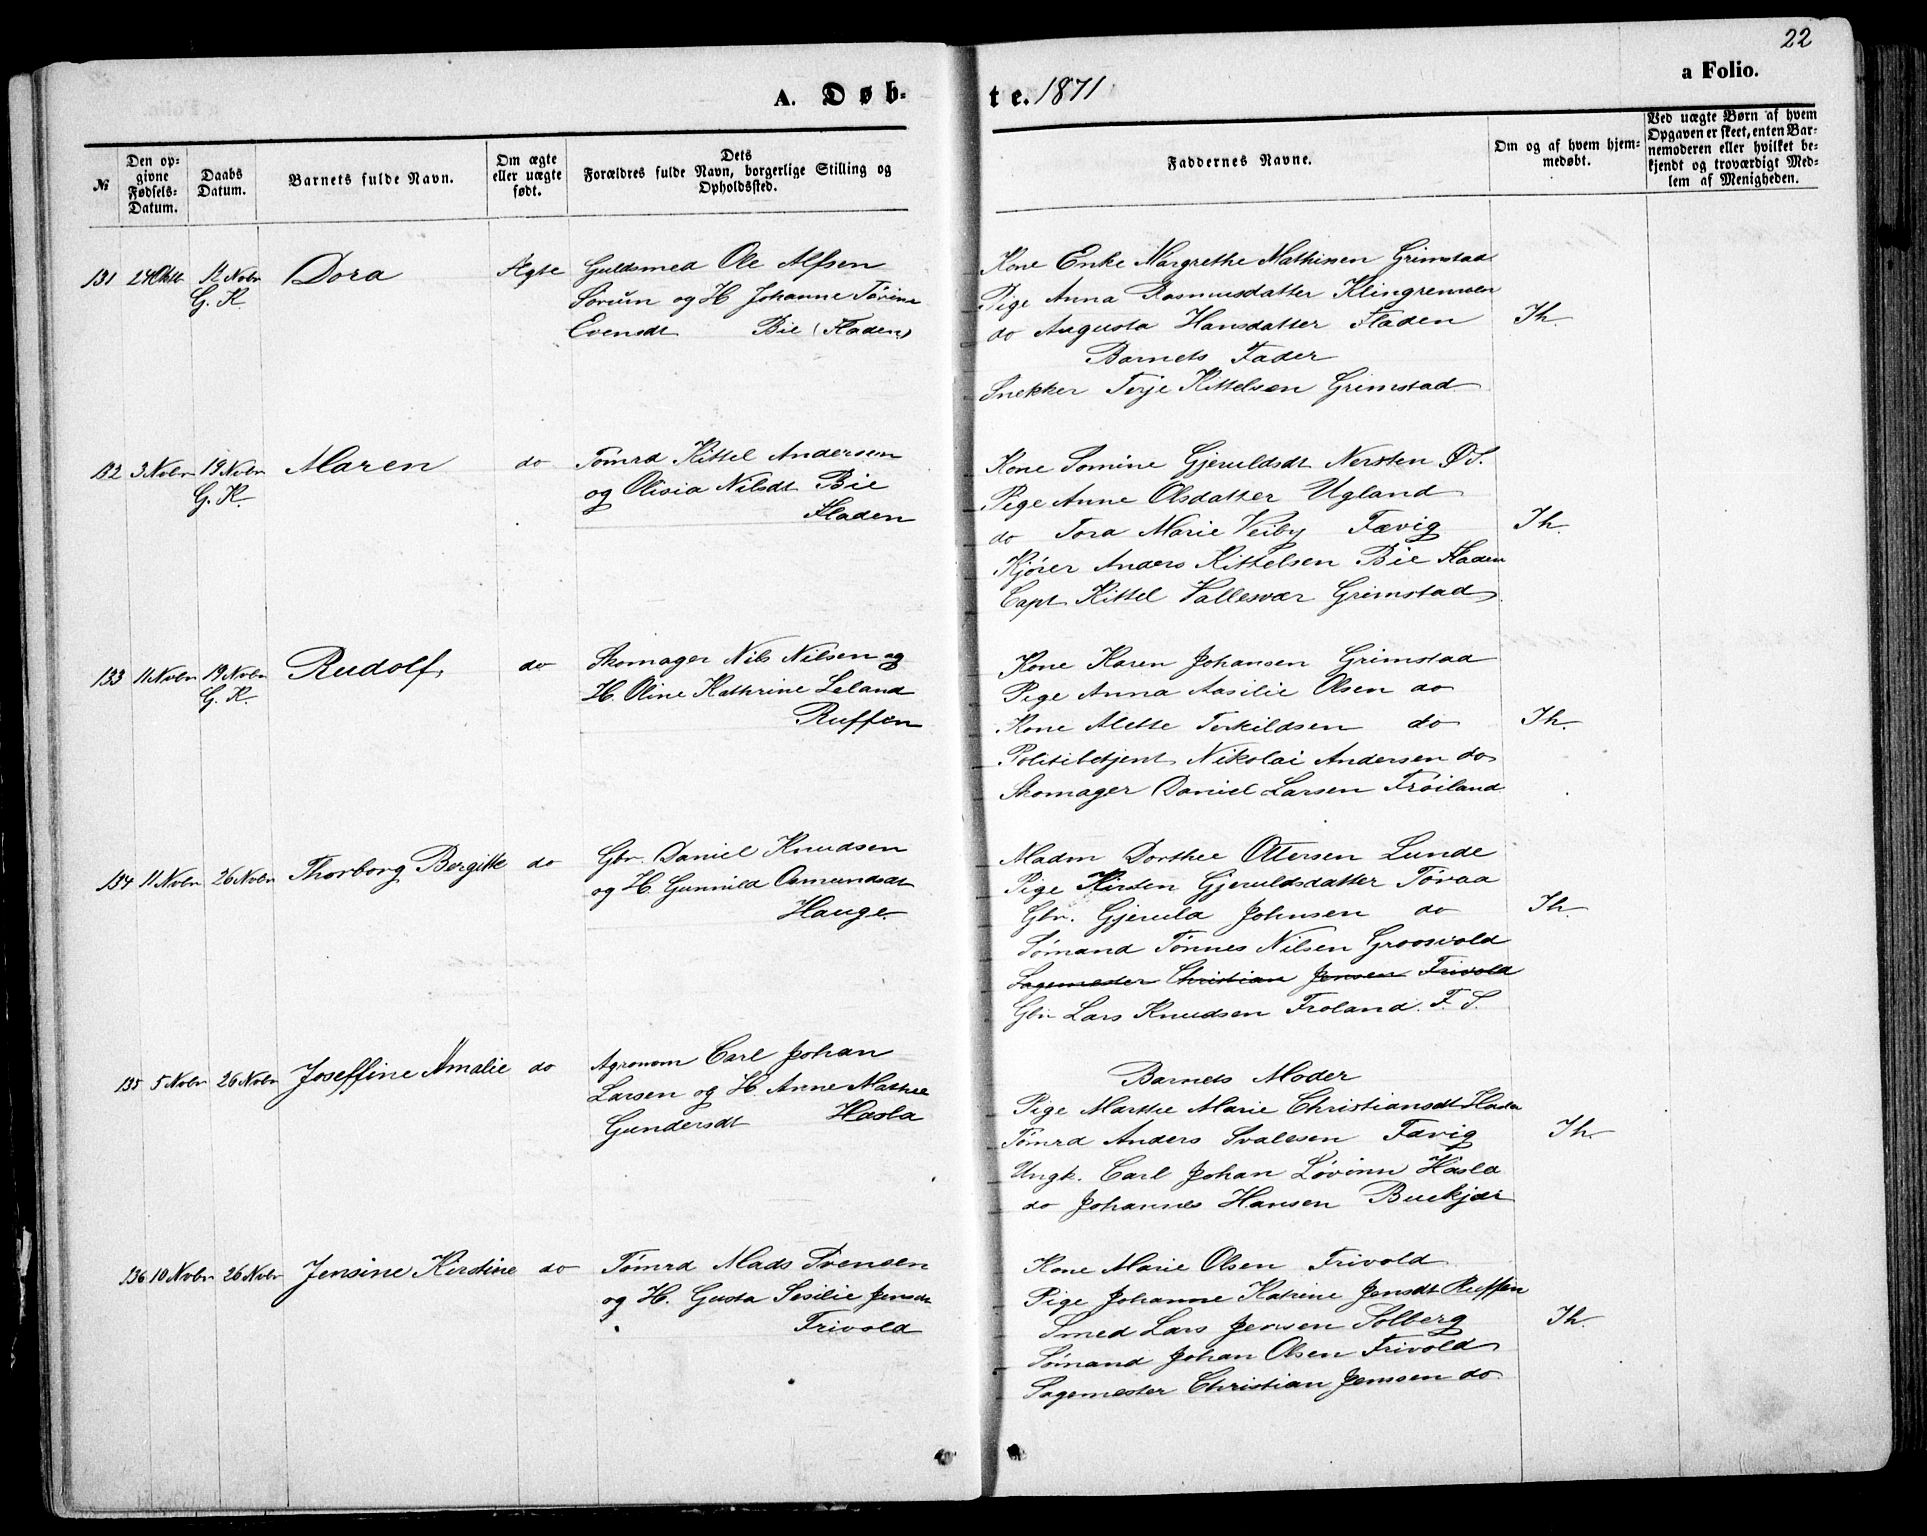 22
A. Døb-
te. 1871
a Folio.
№
Den op-
givne
Fødsels-
Datum.
Daabs
Datum.
Barnets fulde Navn.
Om ægte
eller uægte
født.
Dets
Forældres fulde Navn, borgerlige Stilling og
Opholdssted.
Faddernes Navne.
Om og af hvem hjem-
medøbt.
Ved uægte Børn af hvem
Opgaven er skeet, enten Bar-
nemoderen eller hvilket be-
kjendt og troværdigt Med-
lem af Menigheden.
131 24 Oktbr 12 Novbr Dora Ægte Guldsmed Ole Alfsen
G. K.
Sørum og H Johanne Tørine
Evensdt Bie (Fladen)
Kone Enke Margrethe Mathissen Grimstad
Pige Anna Rasmusdatter Klingremoen
do Augusta Hansdatter Fladen Ih.
Barnets Fader
Snekker Terje Kittelsen Grimstad
132 3 Novbr 19 Novbr Maren do Tømrd Kittel Andersen
G. K.
og Olisia Nilsdt Bie
Fladen
Kone Somine Gjeruldsdt Nersten Ø.S.
Pige Anne Olsdatter Ugland
do Tora Marie Veiby Fævig Ih.
Kjører Anders Kittelsen Bie Fladen
Capt Kittel Vallesvær Grimstad
133 11 Novbr 19 Novbr Rudolf do Skomager Nils Nilsen og
G. K.
H. Oline Kathrine Leland
Ruffen
Kone Karen Johansen Grimstad
Pige Anna Aasilie Olsen do
Kone Alette Terkildsen do Ih.
Politibetjent Nikolai Andersen do
Skomager Daniel Larsen Frøiland
134 11 Novbr 26 Novbr Thorborg Bergitte do Gbr. Daniel Knudsen
og H. Gunnild Osmundsdt
Hauge
Madm Dorthee Ottersen Lunde
Pige Kirsten Gjeruldsdatter Tøvaa
Gbr. Gjeruld Johnsen do Ih.
Sømand Tønnes Nilsen Groosvold
Sagemester Christian Jensen Frivold
Gbr Lars Knudsen Froland. F. S.
135 5 Novbr 26 Novbr Joseffine Amalie do Agronom Carl Johan
Larsen og H. Anne Mathea
Gundersdt Hasla
Barnets Moder
Pige Marthe Marie Christiansdt Hasla
Tømrd Anders Svalesen Fævig Ih.
Ungk. Carl Johan Løvinn Hasla
do Johannes Hansen Buekjær
136 10 Novbr 26 Novbr Jensine Kirstine do Tømrd Mads Svensen
og H. Gusta Sesilie Jensdt
Frivold
Kone Marie Olsen Frivold
Pige Johanne Katrine Jensdt Ruffen
Smed Lars Jensen Solberg Ih.
Sømand Johan Olsen Frivold
Sagemester Christian Jensen do